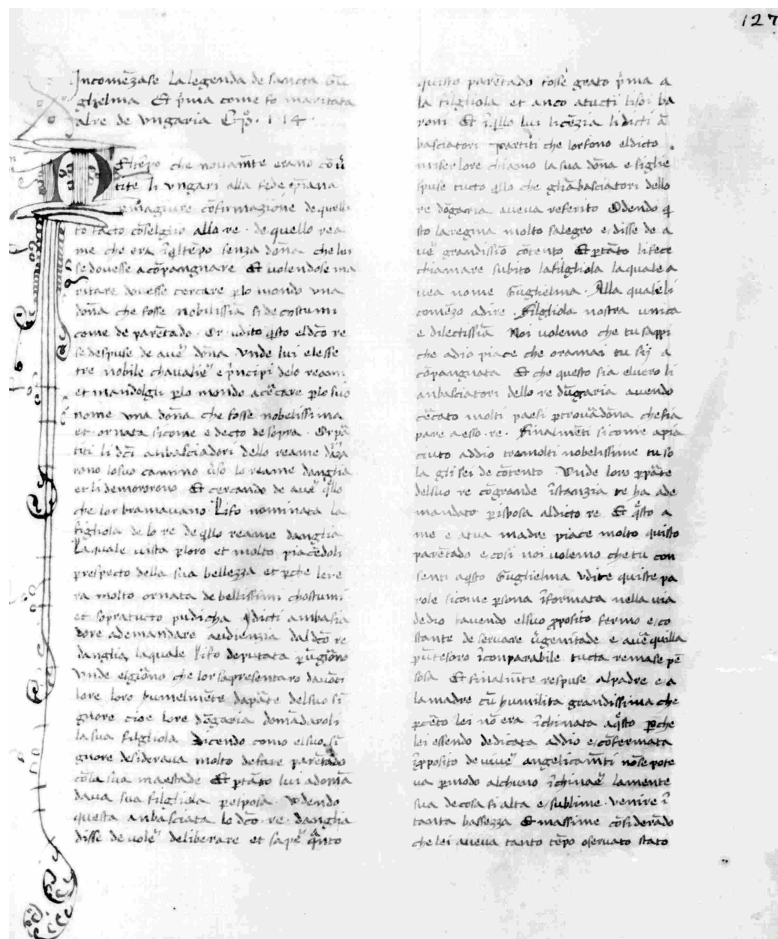 127
Incomēzase la legenda de sancta Gu
glielma Et p̄ma come fo maritata
al re de Vngaria Cap̊. 114.
NEl tēpo che nouamēte erano cōū
tite li vngari alla fede xp̄iana
p maguire cōfirmazione de quello
fo facto cōselglio alla re. de quello rea
me che era ī q̄l tēpo senza dōna che lei
se douesse acōpangnare Et volendose ma
ritare douesse cercare p lo mondo vna
dōna che fosse nobilissīa si de costumi
come de parētado. Et udito q̄sto el dc̄o re
se despuse de auē dōna Vnde lui elesse
tre nobile chavalieř e p̄ncipi de lo ream
et mandolgli p lo mondo acēcare p lo suo
nome vna dōna che fosse nobelissima
et ornata sicome e decto de sopra. Or pā
titi li dc̄i anbasciadori dello reame dūga
rono lo suo camino ūso lo reame danglia
et li demororono Et cercando de auē q̄llo
che lor bramauano Li fo nominata la
figliola de lo re de q̄llo reame danglia
La quale uista p loro et molto piacēdoli
p respecto della sua bellezza et p che lei e
ra molto ornata de bellissimi chostumi
et sopratucto pudicha A dicti ambasia
dore ademandare audienzia dal dc̄o re
danglia la quale li fo deputata p ū giōno
Vnde el giōno che lor sapresentaro dauāti
lore loro humelmēte da pāte del suo si
gnore cioe lo re dūgaria domādaroli
la sua filgliola Dicendo como el suo si
gnore desideraua molto de fare parētado
cō la sua maestade Et p tāto lui adomā
daua sua filgliola p esposa. Vdendo
questa anbasciata lo dc̄o. re. danglia
disse de volē deliberare et sapē q̄nto
quisto parētado fosse grato p̄ma a
la filgliola et anco a tucti li soi ba
roni Et ī q̄llo lui licēzia li dicti ā
basciatori partiti che lor fono el dicto
miser lo re chiamo la sua dōna e si glie
spuse tucto q̄llo che gli ābasciatori dello
re dūgaria aueua referito Odendo q̄
sto la regina molto salegro e disse de a
uē grandissīo cōtento Et p tāto li fece
chiamare subito la filgliola la quale a
uea nome Guglielma. Alla quale li
comēzo adire. Filgliola nostra unica
e dilectissīa Noi volemo che tu sappi
che adio piace che oramai tu sej a
cōpangnata Et che questo sia el uero li
anbasciatori dello re dūgaria auendo
cēcato molti paesi p trouā dōna che sia
pare a esso. re. Finalmēti sicome a pia
ciuto addio tra molti nobelissime tu so
la gli sei de cōtento Vnde loro p pāte
del suo re cō grande īstanzia te ha ade
mandato p isposa al dicto re Et q̄sto a
me e a tua madre piace molto quisto
parētado e cosi noi volemo che tu con
senti a q̄sto Guglielma vdite quiste pa
role sicome p̄sona īformata nella via
de dio hauendo el suo p̄posito fermo e co
stante de seruare ūgenitade e auē quilla
p ū tesoro īconparabile tucta remase pē
sosa Et finalmēte respuse al padre e a
la madre cū humilita grandissima che
p cēto lei nō era īchinata a q̄sto p che
lei essendo dedicata addio e cōfermata
ī p̄posito de viuē angelicamēti nō se pote
ua p modo alchuno īchinaē la mente
sua de cosa si alta e sublime. venire ī
tanta bassezza Et massime cōsiderādo
che lei aueua tanto tēpo oseruato stato